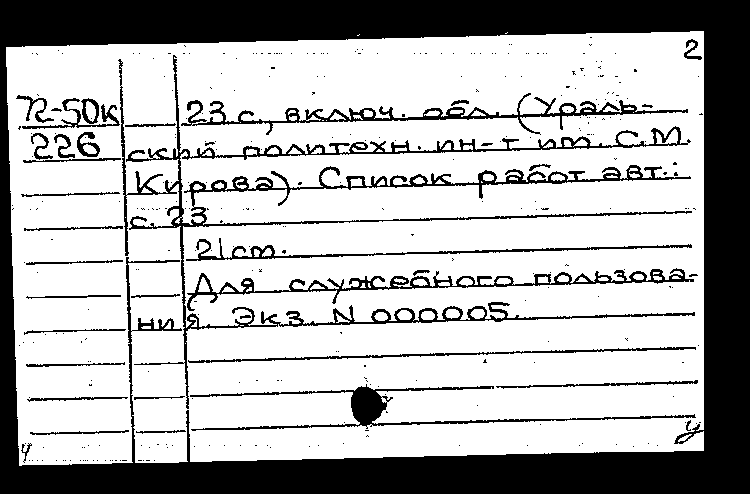 2
72-50к 23 с., включ. обл. (Ураль-
226 ский политехн. ин-т им. С.М.
Кирова). Список работ авт.:
с. 23.
21 cm.
Для служебного пользова-
ния. Экз. N 000005.
у
ч